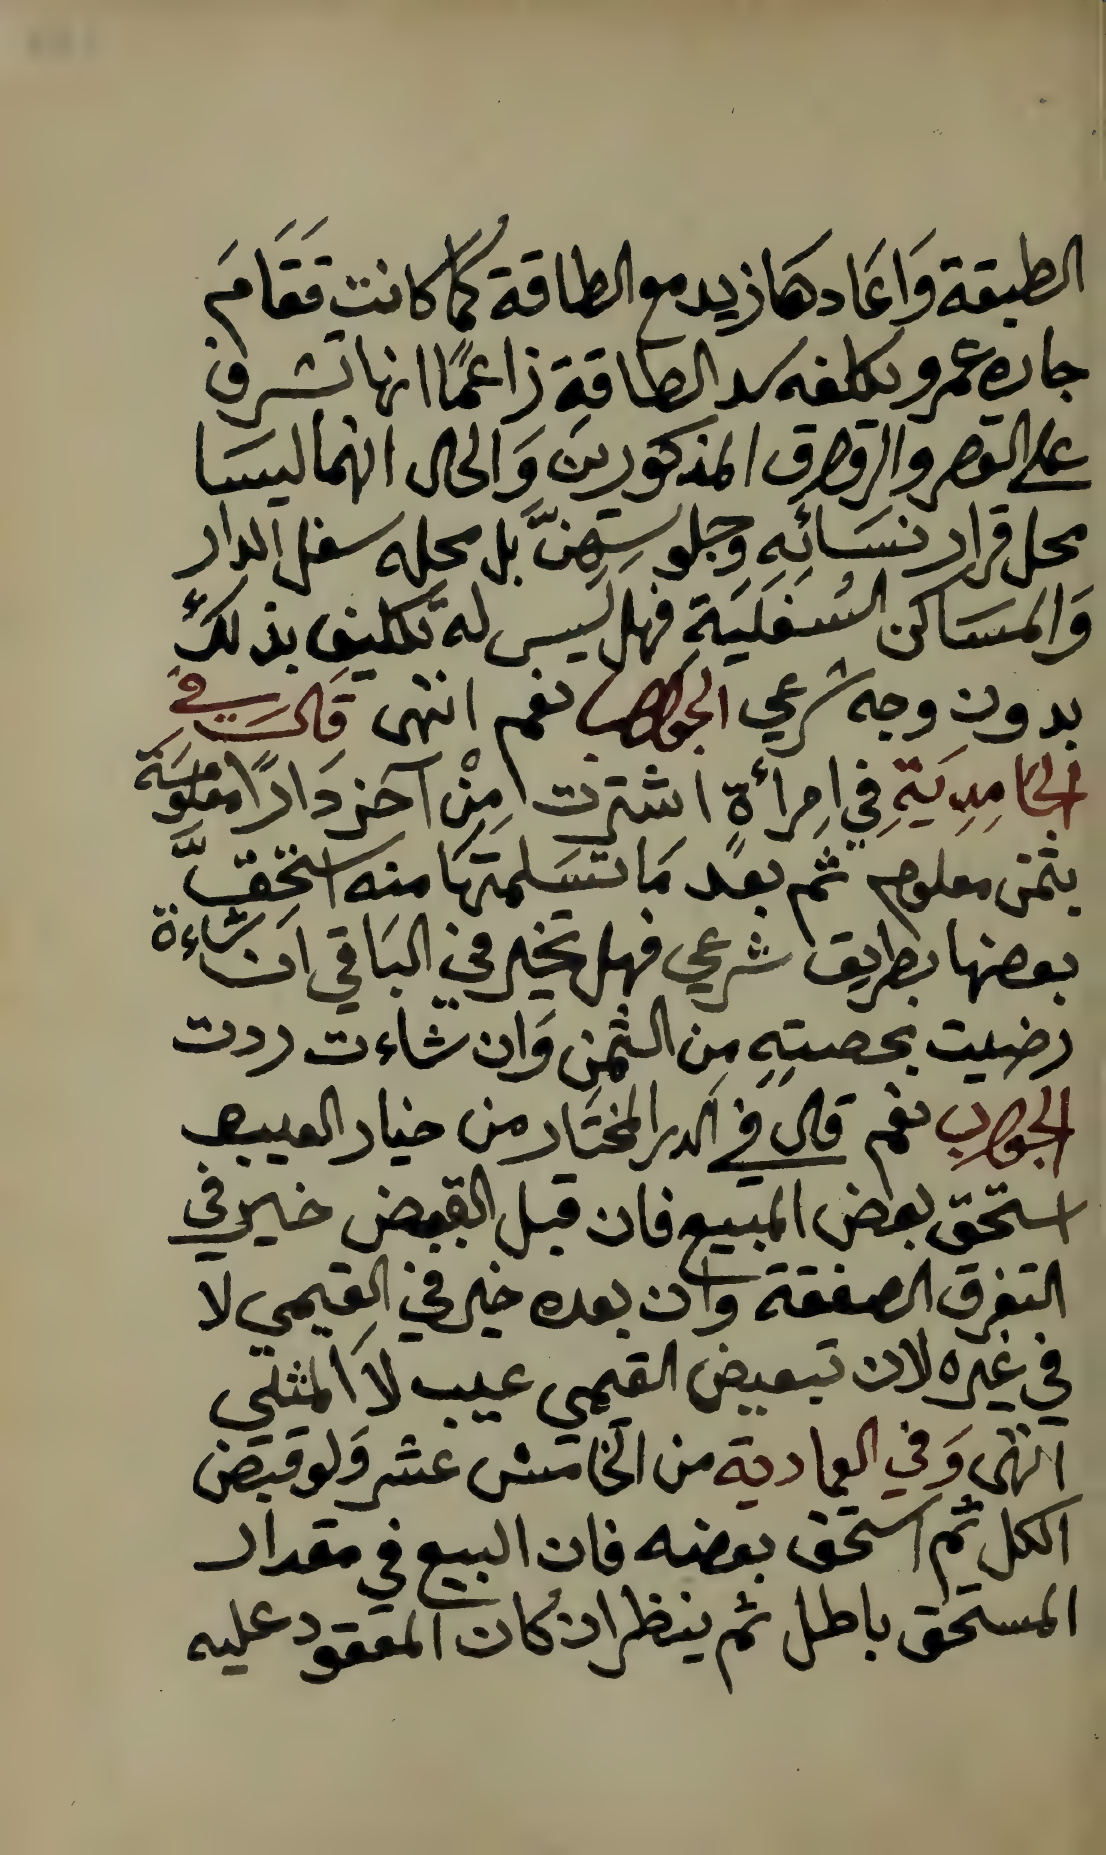 الطبقة وَاعَادهَا زيد مع الطاقة كما كانت فَقَامَ
جاره عمرو يكلفه سد الطاقة زاعمًا انها تشرف
على القصر والرواق المذكورين وَالحال انهما ليسَا
محل قرار نسَائِهِ وجلوسِهِنَّ بل محله سفل الدار
وَالمسَاكن السُفلَيَة فهل ليس له تكليف بذلك
بدون وجه شرعي الجواب نعم انتهى قَالَ في
الحَامِدِيَةِ في اِمرأةٍ اشترت مِنْ آخر دَارًا معلومَة
بثمن معلوم ثم بعد مَا تسَلمتهَا منه استحقَّ
بعضها بطريق شرعي فهل تخير في البَاقي ان شاءة
رضيت بحصتِهِ مِن الثمن وَان شاءت ردت
الجواب نعم قال في الدر المختَار من خيار العيب
استحق بعض المبيع فان قبل القبض خير في
التفرق الصفقة وان بعده خير في القيمي لا
في غيره لان تبعيض القيمي عيب لاَ المثلي
انتهى وَفي العمادية من الخَامسْ عشر وَلو قبَض
الكل ثم استحق بعضه فان البيع في مقدار
المستحق باطل ثم ينظر ان كان المعقود عليه